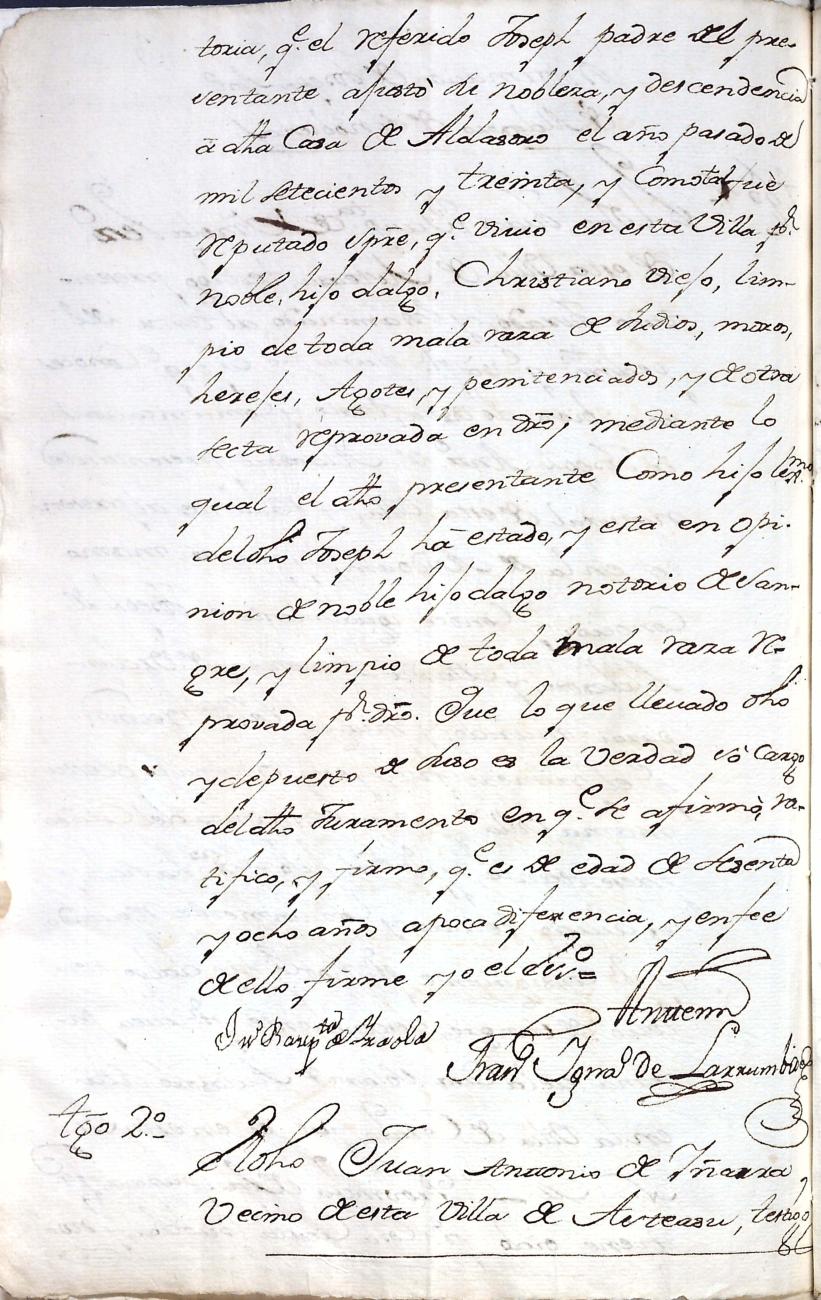 toria, q.e el referido Joseph padre del pre-
ventante afustò su nobleza, y descendencia
â dha Casa de Aldasoro el año pasado de
mil setecientos y treinta, y Como tal fuè
reputado spre, q.e vivio en esta Villa pr.
noble, hijo dalgo, Christiano Viejo, lim-
pio de toda mala raza de Judios, moros,
herejes, Agotes, y penitenciados, y de otra
secta reprovada en dro, mediante lo
qual el dho presentante Como hijo lexmo.
del dho Joseph hà estado, y esta en opi-
nion de noble hijo dalgo notorio de San-
gre, y limpio de toda mala raza re-
provada pr. dro. Que lo que llevado dho
y depuesto de suso es la Verdad sò cargo
del dho Juramento en q.e se afirmò, ra-
tifico, y firmo, q.e es de edad de sesenta
y ocho años a poca diferencia, y en fee
de ello firme yo el essno.=
Jn Baupta de Yraola
Antemi
Franco Ignao de Larrumbide
tgo 2.o
El dho Juan Antonio de Yñarra
Vecino de esta Villa de Asteasu, testigo